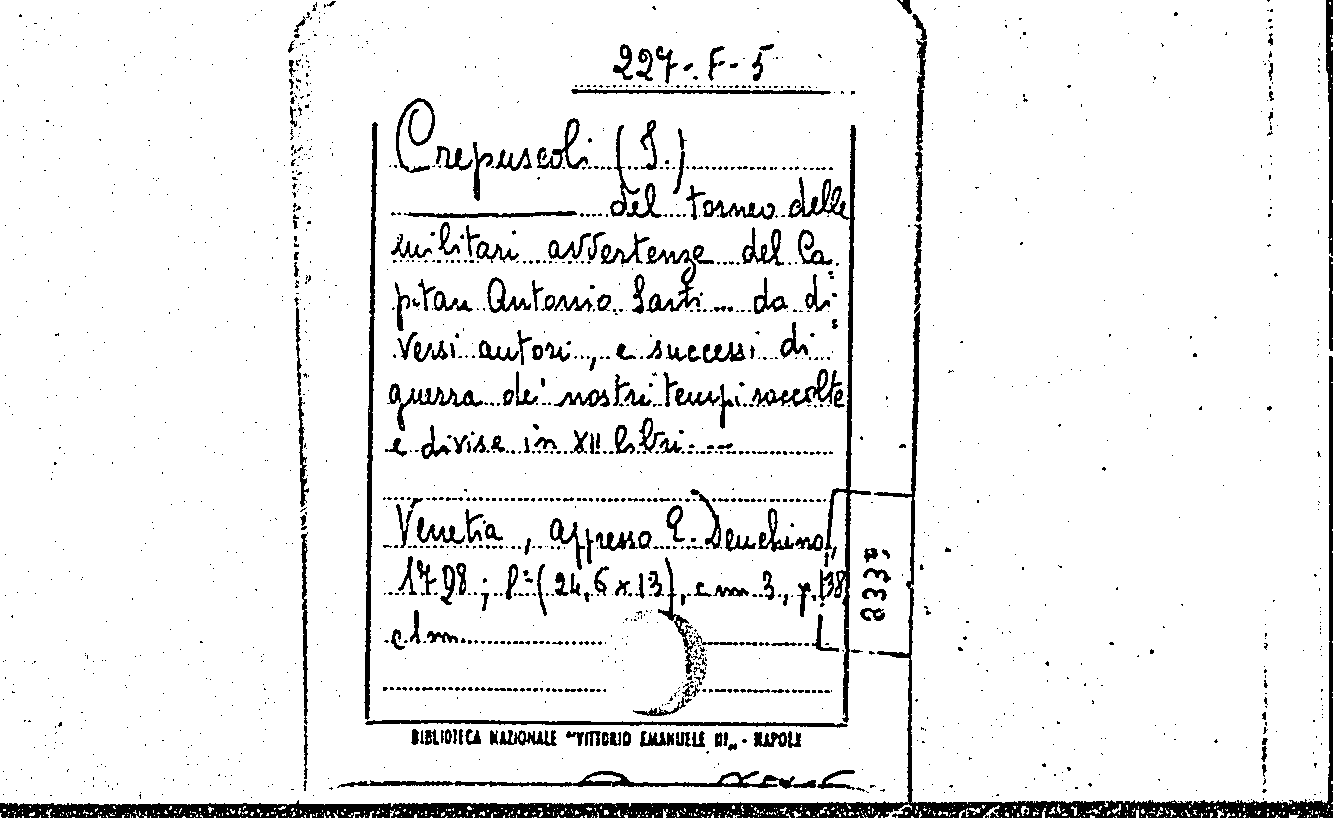 227-F-5
Crepuscoli (I.)
del torneo delle
militari avvertenze del Ca=
pitan Antonio Sarti... da di=
versi autori, e successi di
guerra dei nostri tempi raccolte
e divise in XII libri....
Venetia, appresso E. Deuchino,
1798; l=(24,6 x 13), c nn 3., p. 138,
c 1 nn.
8337
BIBLIOTECA NAZIONALE "VITTORIO EMANUELE III„ - NAPOLI